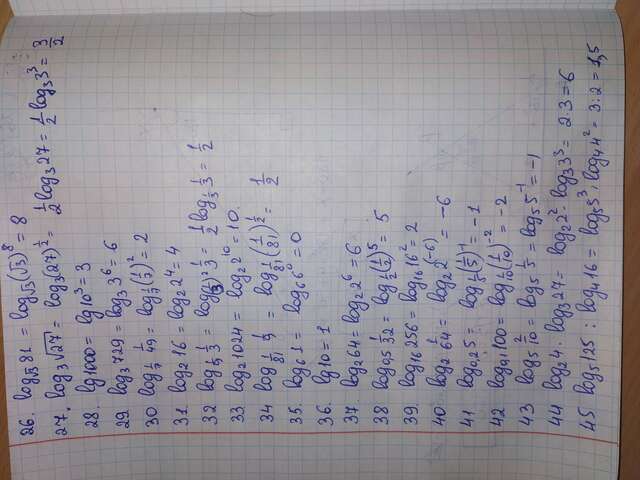 26. log_√3 81 = log_√3 (√3)^8 = 8
27. log_3 √27 = log_3 (27)^(1/2) = 1/2 log_3 27 = 1/2 log_3 3^3 = 3/2
28. lg 1000 = lg 10^3 = 3
29 log_3 729 = log_3 3^6 = 6
30 log_(1/7) 1/49 = log_(1/7) (1/7)^2 = 2
31 log_2 16 = log_2 2^4 = 4
32 log_(1/9) 1/3 = log_(1/3)^2 1/3 = 1/2 log_(1/3) 1/3 = 1/2
33 log_2 1024 = log_2 2^10 = 10.
34 log_(1/81) 1/9 = log_(1/81) (1/81)^(1/2) = 1/2
35. log_6 1 = log_6 6^0 = 0
36. lg 10 = 1
37. log_2 64 = log_2 2^6 = 6
38 log_0,5 1/32 = log_(1/2) (1/2)^5 = 5
39 log_16 256 = log_16 16^2 = 2
40 log_2 1/64 = log_2 2^(-6) = -6
41 log_0,2 5 = log_(1/5) (1/5)^-1 = -1
42 log_0,1 100 = log_(1/10) (1/10)^-2 = -2
43 log_5 2/10 = log_5 1/5 = log_5 5^-1 = -1
44 log_2 4 · log_3 27 = log_2 2^2 · log_3 3^3 = 2·3 = 6
45 log_5 125 : log_4 16 = log_5 5^3 : log_4 4^2 = 3:2 = 1,5